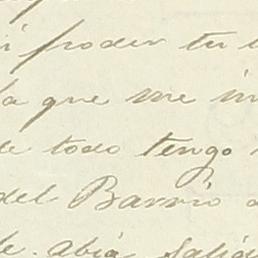 poder tu
que me
de todo tengo
del Barrio
abia Salid